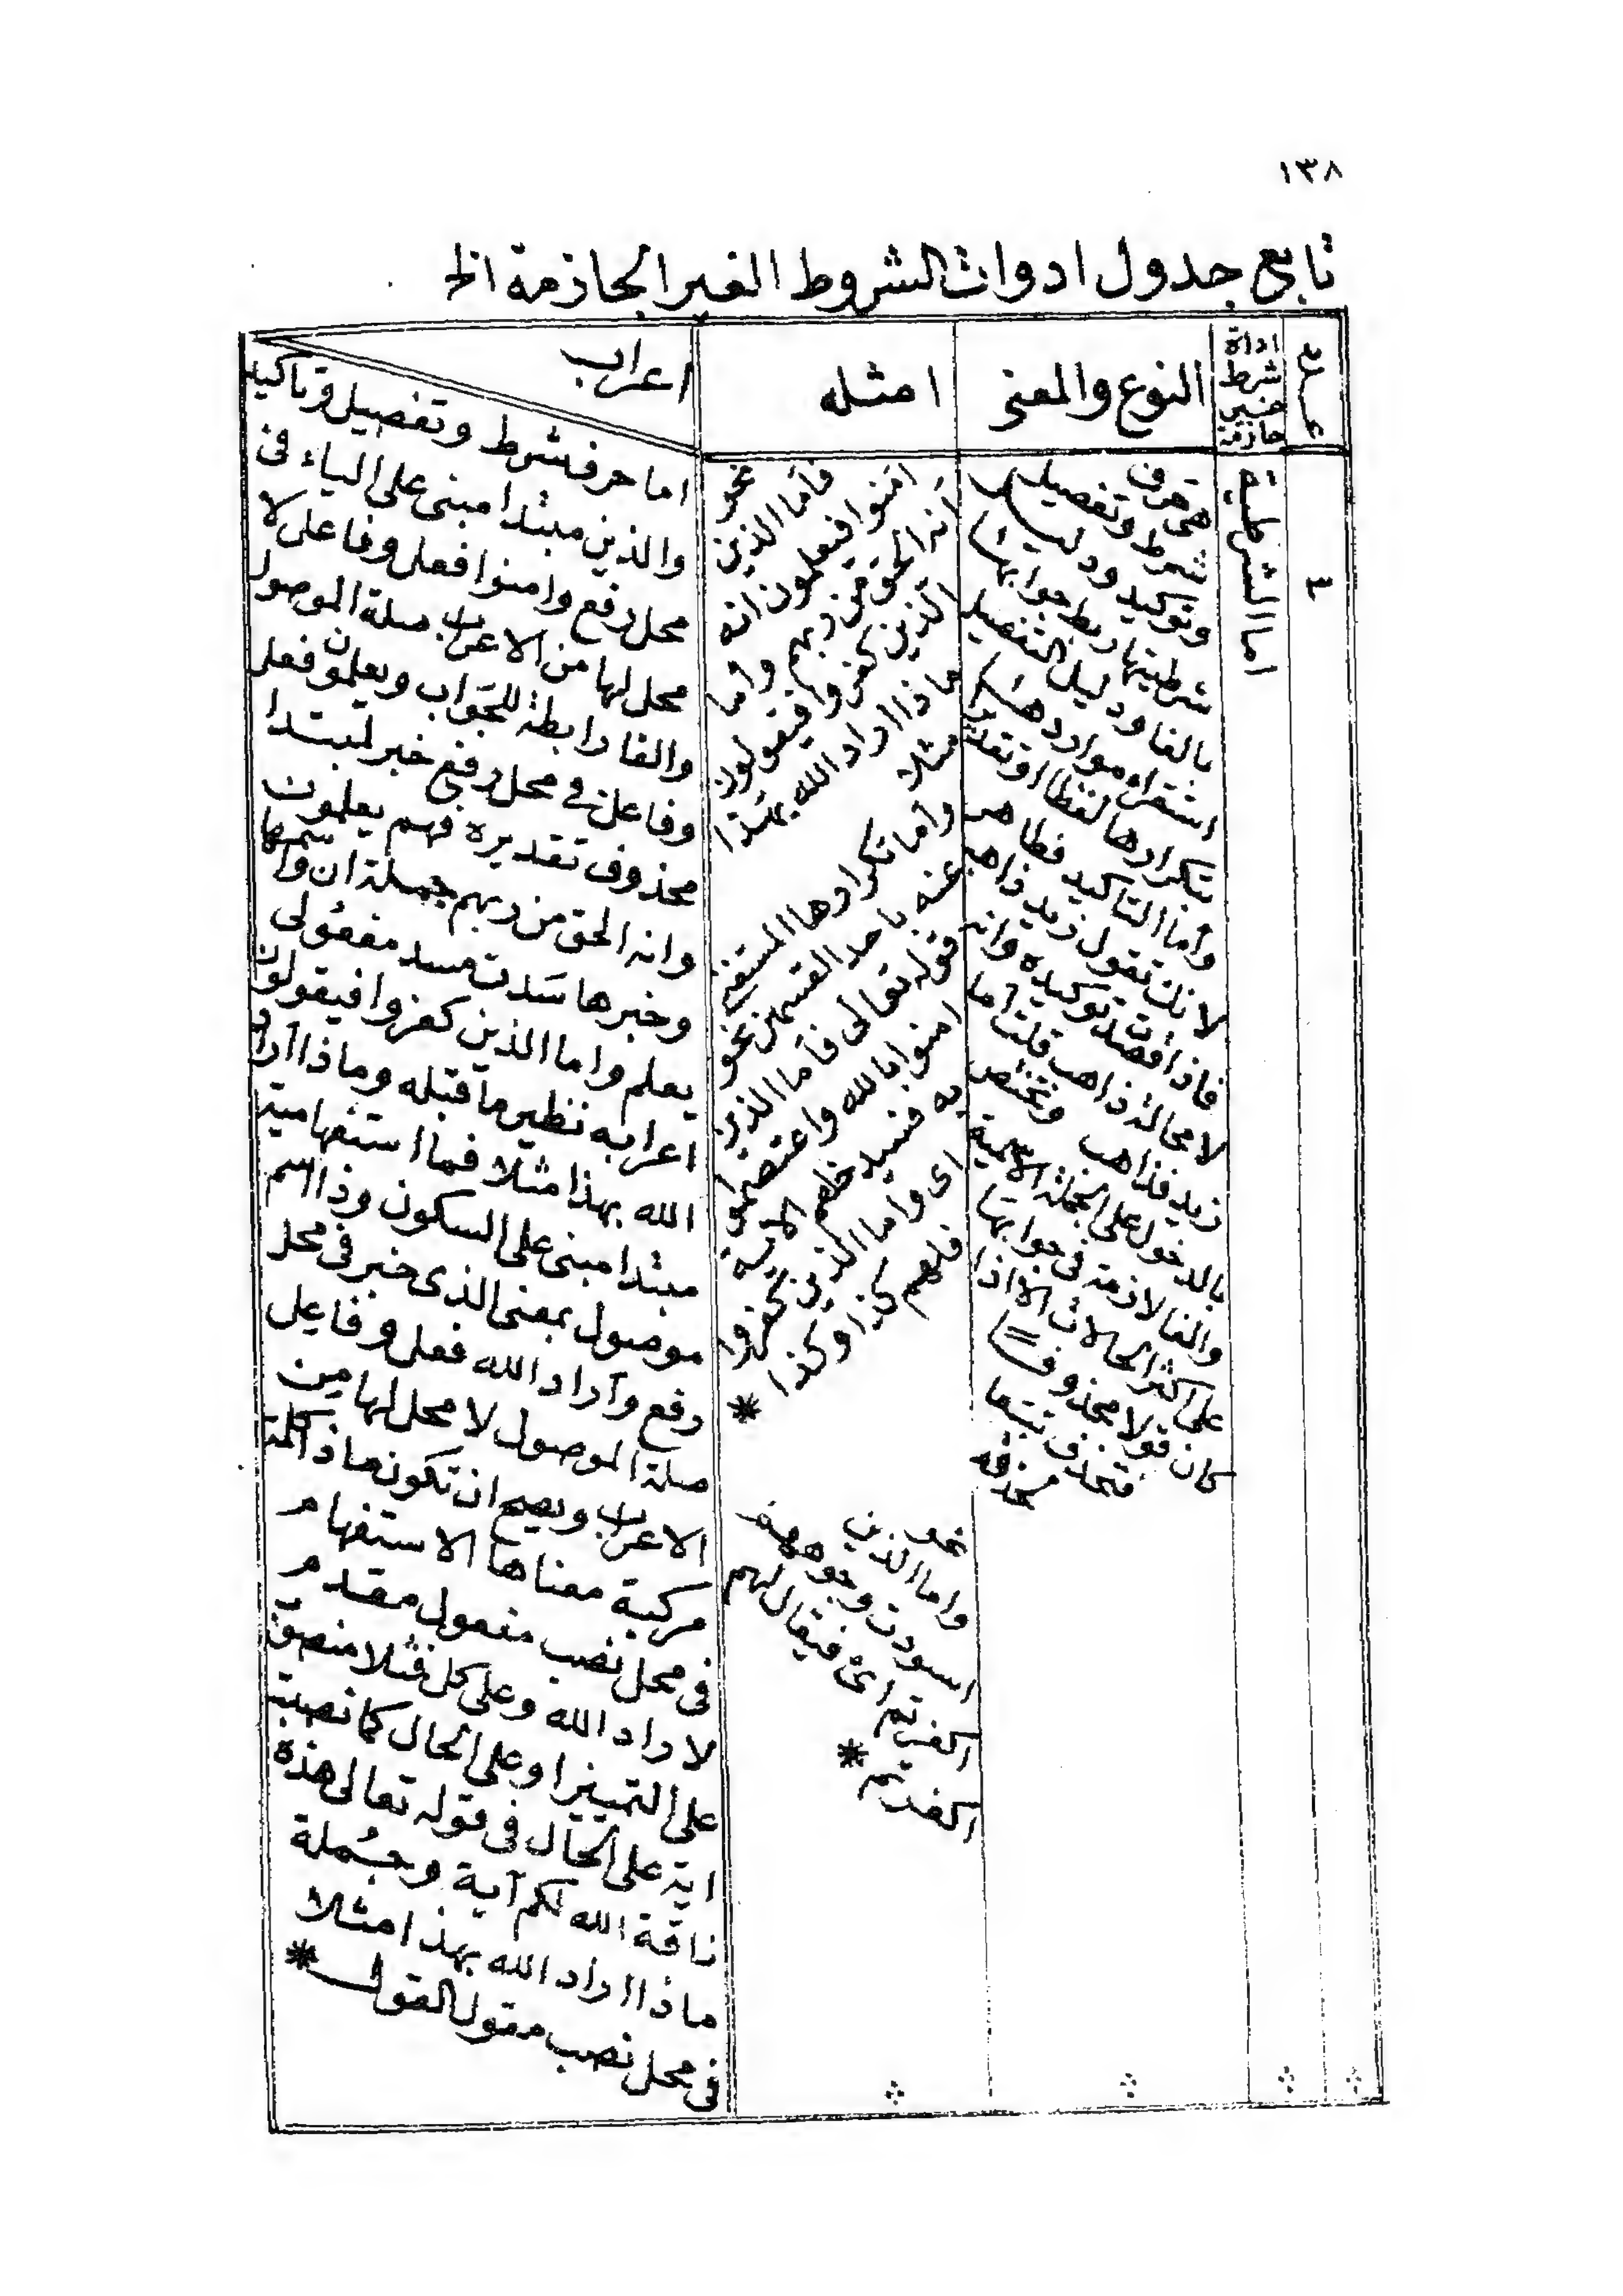 ١٣٨
تابع جدول ادوات الشروط الغير الجازمة الخ
عدد
اداة
شرط
غير
جازمة
النوع والمعنى
امثله
اعراب
٤
اما الشرطية
هي حرف
شرط وتفصيل
وتوكيد ودليل
شرطيتها ربط جوابها
بالفا ودليل التفصيل
استقراء مواردها
بتكرارها لفظا او تقديرا
وأما التاكيد فظاهر
لانك تقول زيد ذاهب
فاذا قصدت توكيده وانه
لا محالة ذاهب قلت أما
زيد فذاهب وتختص
بالدخول على الجملة الاسمية
والفا لازمة في جوابها
على اكثر الحالات الا اذا
كان قولا محذوفا
فتحذف تبعا
نحو
فأما الذين
امنوا فيعلمون انه
أنه الحق من ربهم واما
الذين كفروا فيقولون
ماذا اراد الله بهذا
مثلا
وأما تكرارها المستغنى
عنه باحد القسمين نحو
قوله تعالى فأما الذين
امنوا بالله واعتصموا
به فسيدخلهم الآية
اى واما الذين كفروا
فلهم كذا وكذا *
نحو
واما الذين
اسودت وجوههم
اكفرتم اى فيقال لهم
اكفرتم *
اما حرف شرط وتفصيل وتاكيد
والذين مبتدا مبنى على الياء فى
محل رفع وامنوا فعل وفاعل لا
محل لها من الاعراب صلة الموصول
والفا رابطة للجواب ويعلمون فعل
وفاعل في محل رفع خبر لمبتدا
محذوف تقديره فهم يعلمون
وانه الحق من ربهم جملة ان واسمها
وخبرها سَدت مسد مفعُولى
يعلم واما الذين كفروا فيقولون
اعرابه نظير ما قبله وماذا آراد
الله بهذا مثلا فما استفهامية
مبتدا مبنى على السكون وذا اسم
موصول بمعنى الذى خبر فى محل
رفع وآراد الله فعل وفاعل
صلة الموصول لا محل لها من
الاعراب ويصح ان تكون ماذا كلمة
مركبة معناها الاستفهام
فى محل نصب مفعول مقدم
لاراد الله وعلى كل فمثلا منصوب
على التمييز او على الحال كما نصبت
اية على الحال فى قوله تعالى هذه
ناقة الله لكم آية وجُملة
ماذا اراد الله بهذا مثلا
فى محل نصب مقول القول *